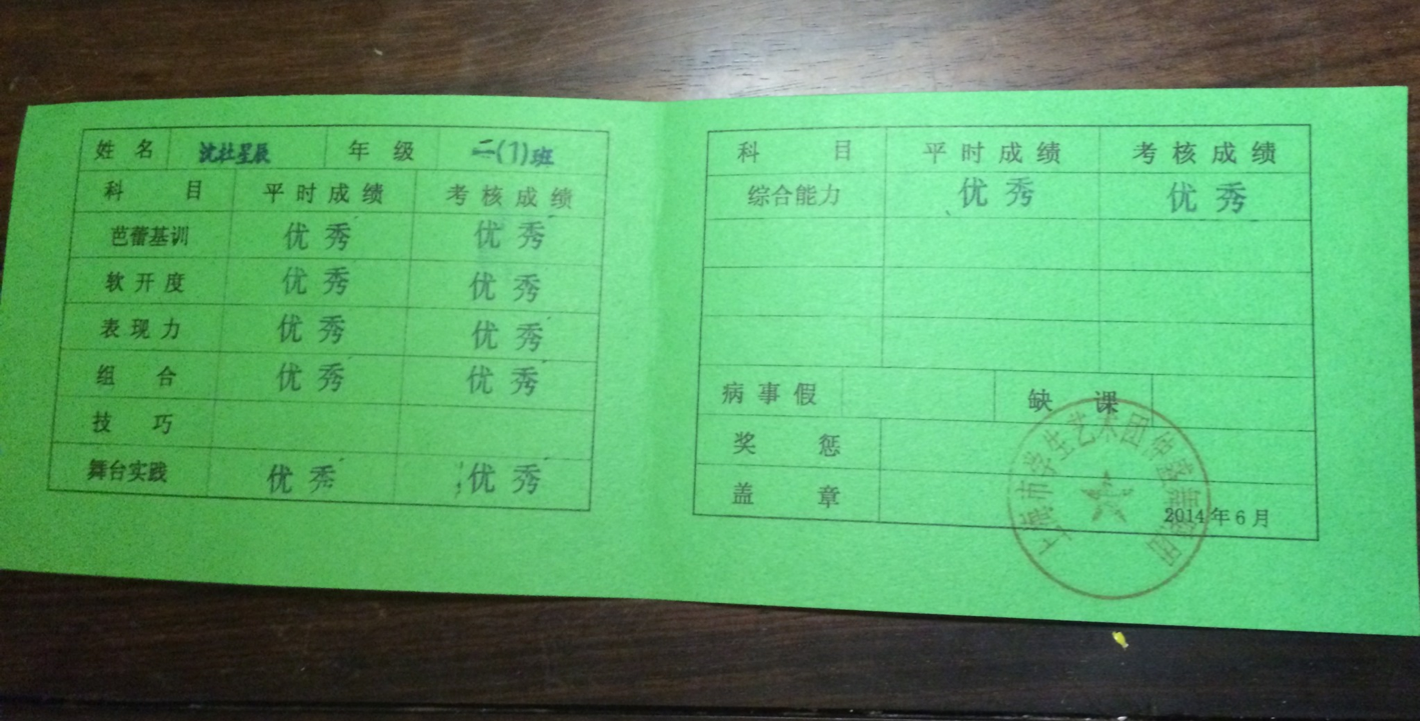 姓 名 沈杜星辰 年 级 二(1)班
科 目 平时成绩 考核成绩
芭蕾基训 优秀 优秀
软开度 优秀 优秀
表现力 优秀 优秀
组 合 优秀 优秀
技 巧
舞台实践 优秀 优秀
科 目 平时成绩 考核成绩
综合能力 优秀 优秀
病事假 缺 课
奖 惩
盖 章
2014年6月
上海市学生艺术团